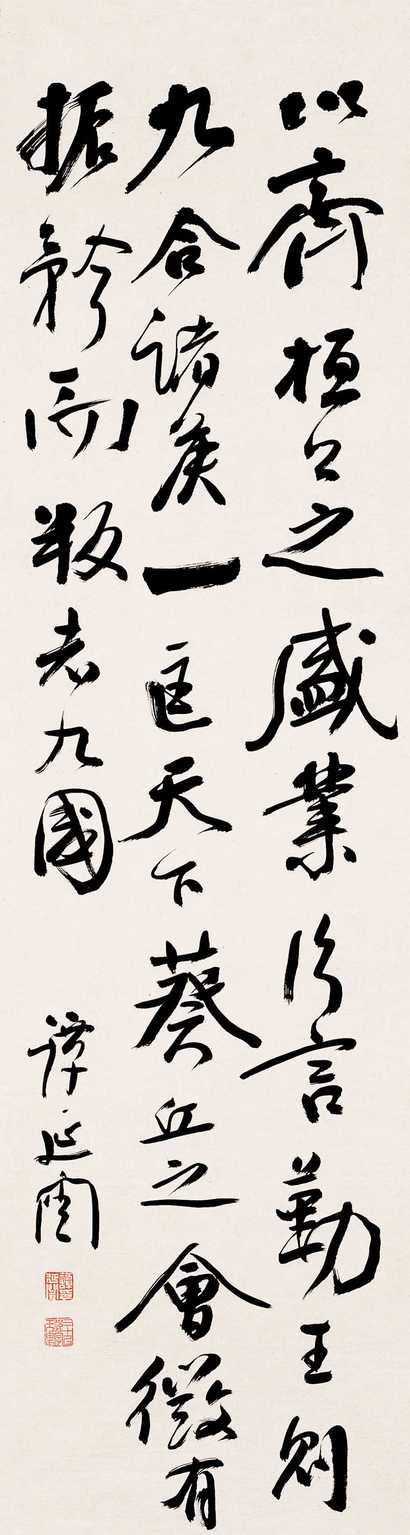 以齊桓公之盛業片言勤王則
九合諸侯一匡天下葵丘之會微有
振矜而叛者九國
譚延闓